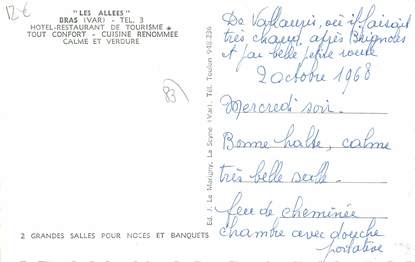 12€
"LES ALLEES"
BRAS (VAR) - TEL. 3
HOTEL-RESTAURANT DE TOURISME *
TOUT CONFORT - CUISINE RENOMMEE
CALME ET VERDURE
83
Ed. J. Le Marigny, La Seyne (Var), Tél. Toulon 948.236
De Vallauris, où il faisait
très chaud, après Brignoles
et par belle petite route
2 octobre 1968
Mercredi soir.
Bonne halte, calme
très belle salle
feu de cheminée
chambre avec douche
portative
2 GRANDES SALLES POUR NOCES ET BANQUETS